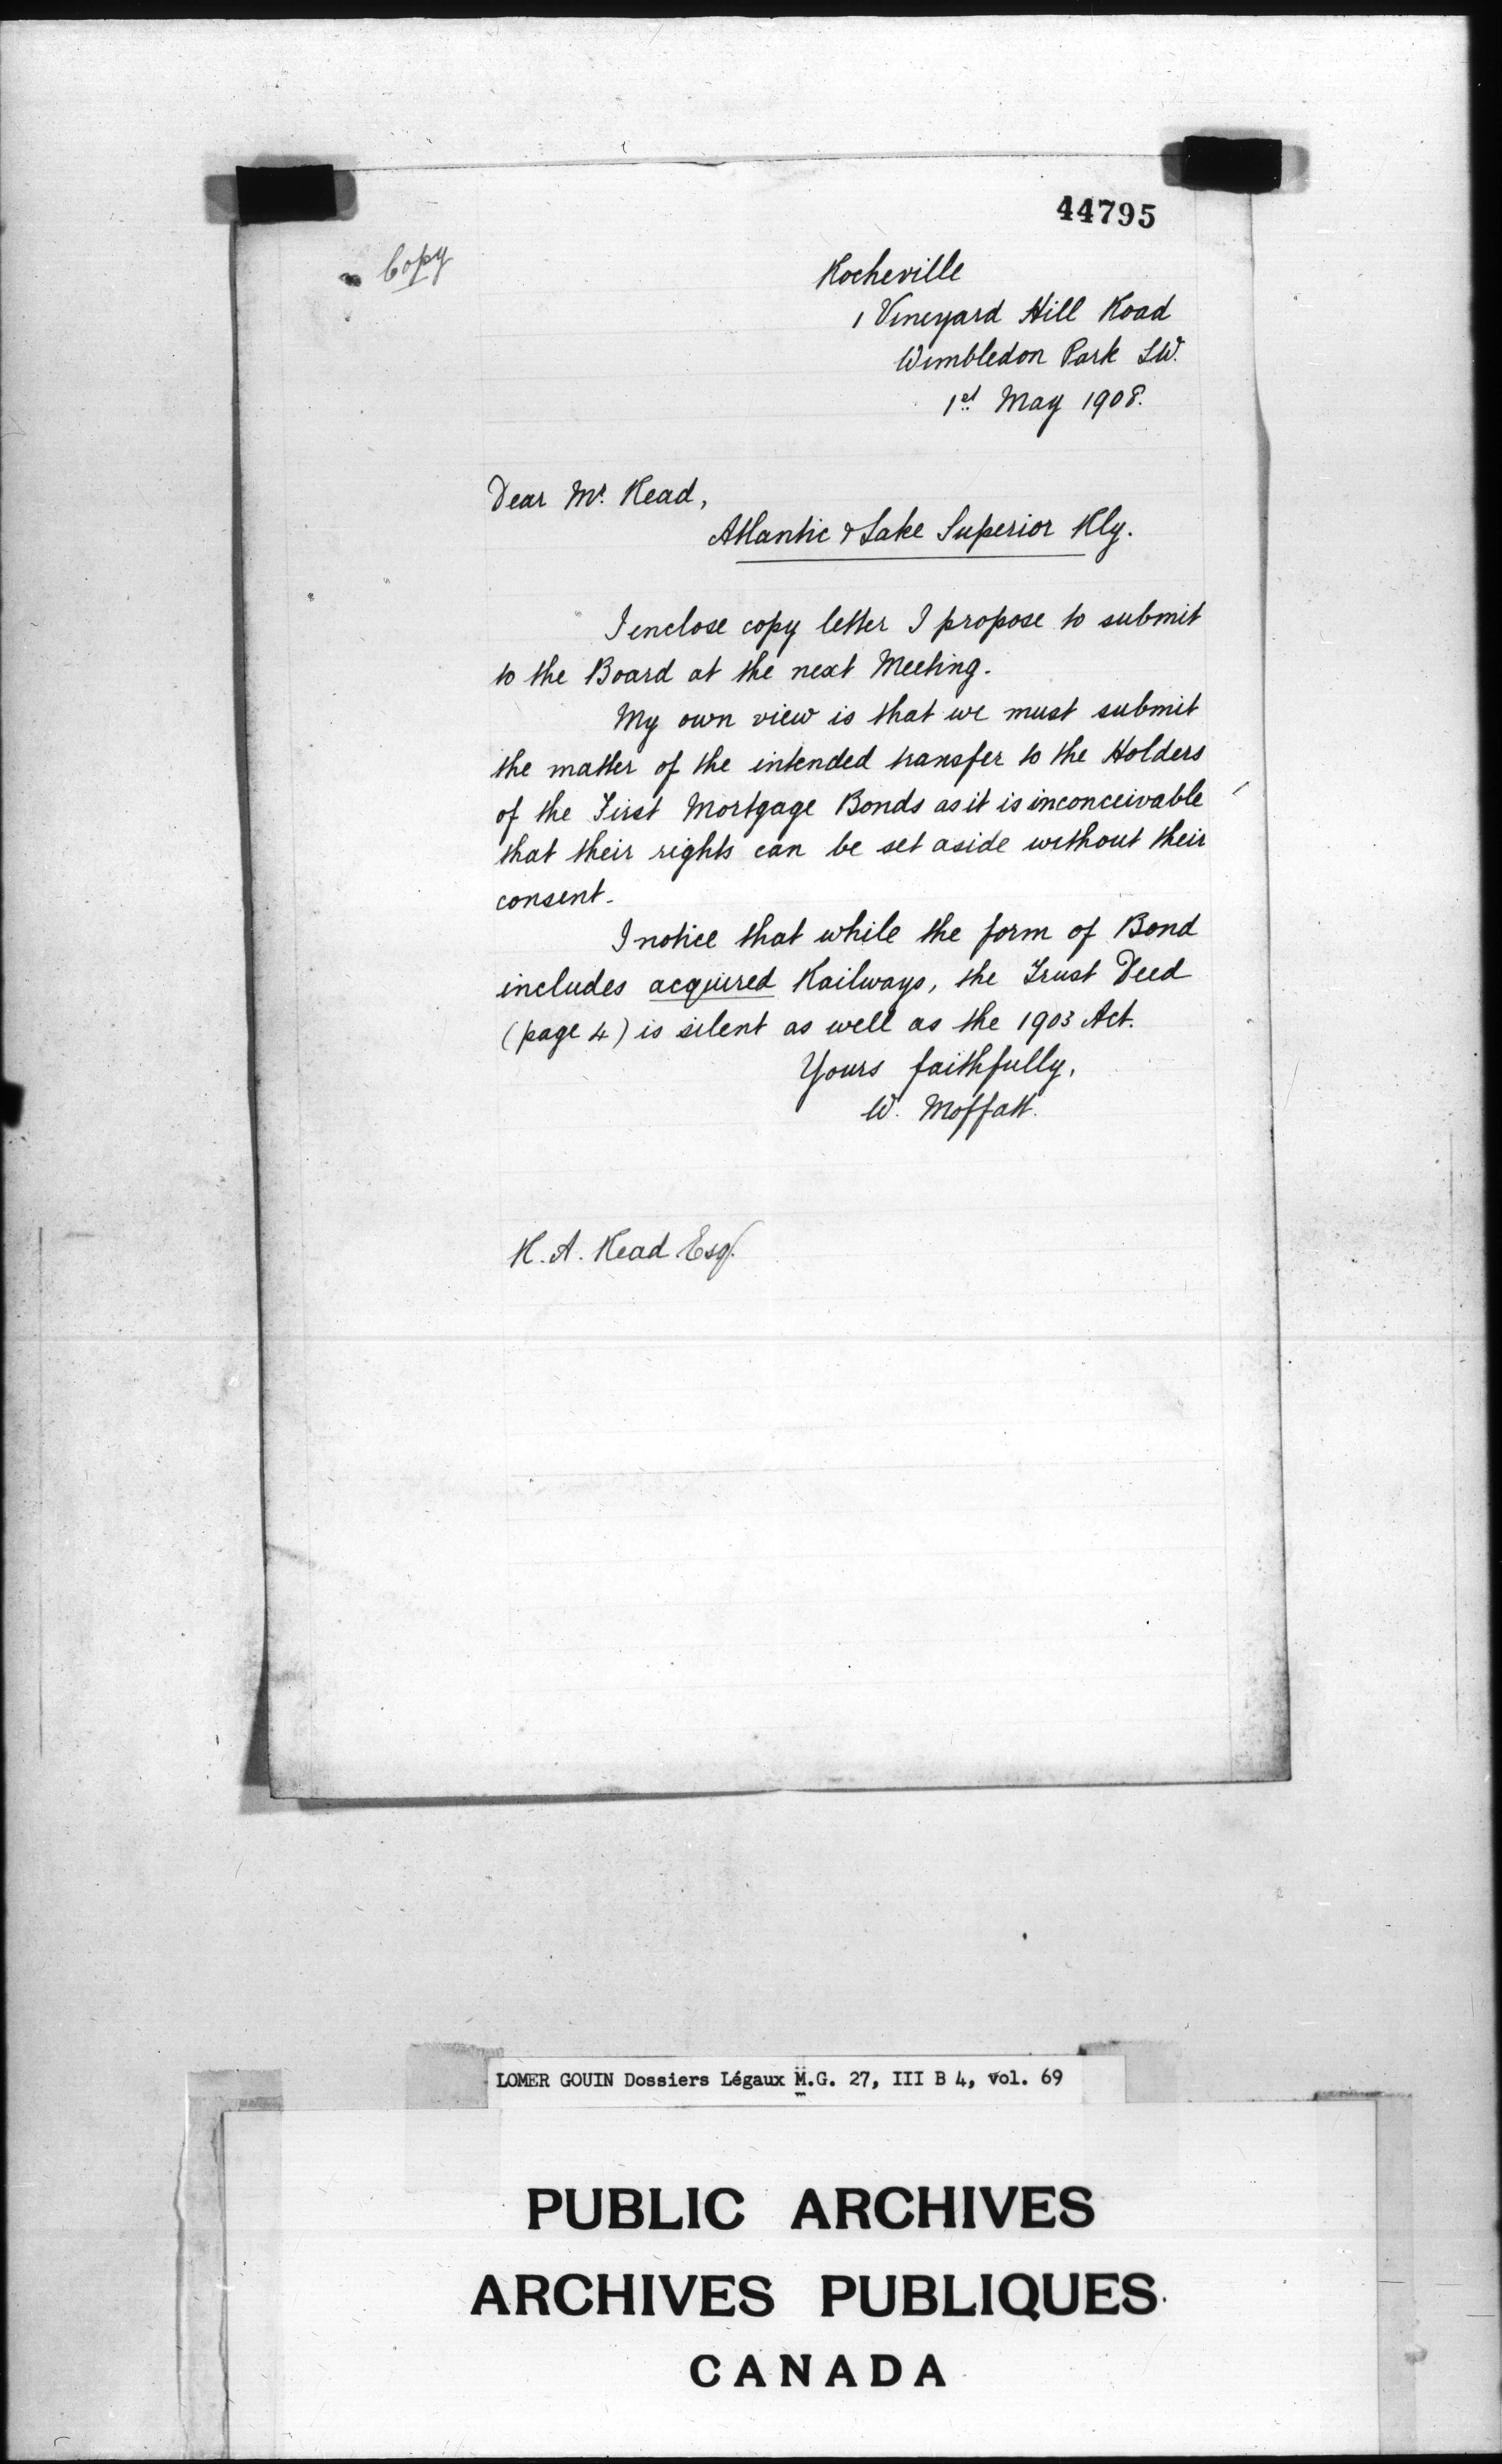 44795
Copy
Rocheville
1 Vineyard Hill Road
Wimbledon Park S.W.
1st May 1908.
Dear Mr. Read,
Atlantic & Lake Superior Rly.
I enclose copy letter I propose to submit
to the Board at the next Meeting.
My own view is that we must submit
the matter of the intended transfer to the Holders
of the First Mortgage Bonds as it is inconceivable
that their rights can be set aside without their
consent.
I notice that while the form of Bond
includes acquired Railways, the Trust Deed
(page 4) is silent as well as the 1903 Act.
Yours faithfully,
W. Moffatt.
R. A. Read Esq.
LOMER GOUIN Dossiers Légaux M.G. 27, III B 4, vol. 69
PUBLIC ARCHIVES
ARCHIVES PUBLIQUES
CANADA